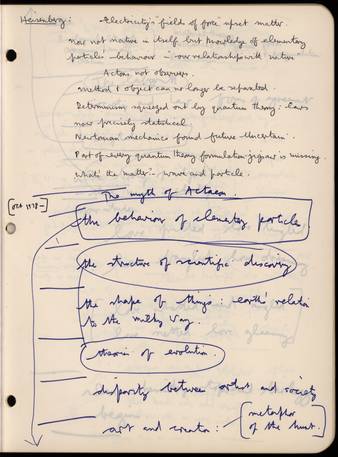 Heisenberg: Electricity's fields of force upset matter.
now not in itself but knowledge of elementary
particles' behaviour in our relationship with nature
Actors not observers.
method & object can no longer be separated.
Determinism squeezed out by quantum theory: laws
now precisely statistical.
Newtonian mechanics found future uncertain.
Part of every quantum theory formulation jigsaw is missing.
what's the matter - wave and particle.
The myth of Actaeon.
[Oct 1978-]
the behavior of elementary particle
the structure of scientific discovery
the shape of things: earth's relation
to the milky way.
theories of evolution.
disparity between artist and society
art and creator: [metaphor
of the hunt.]